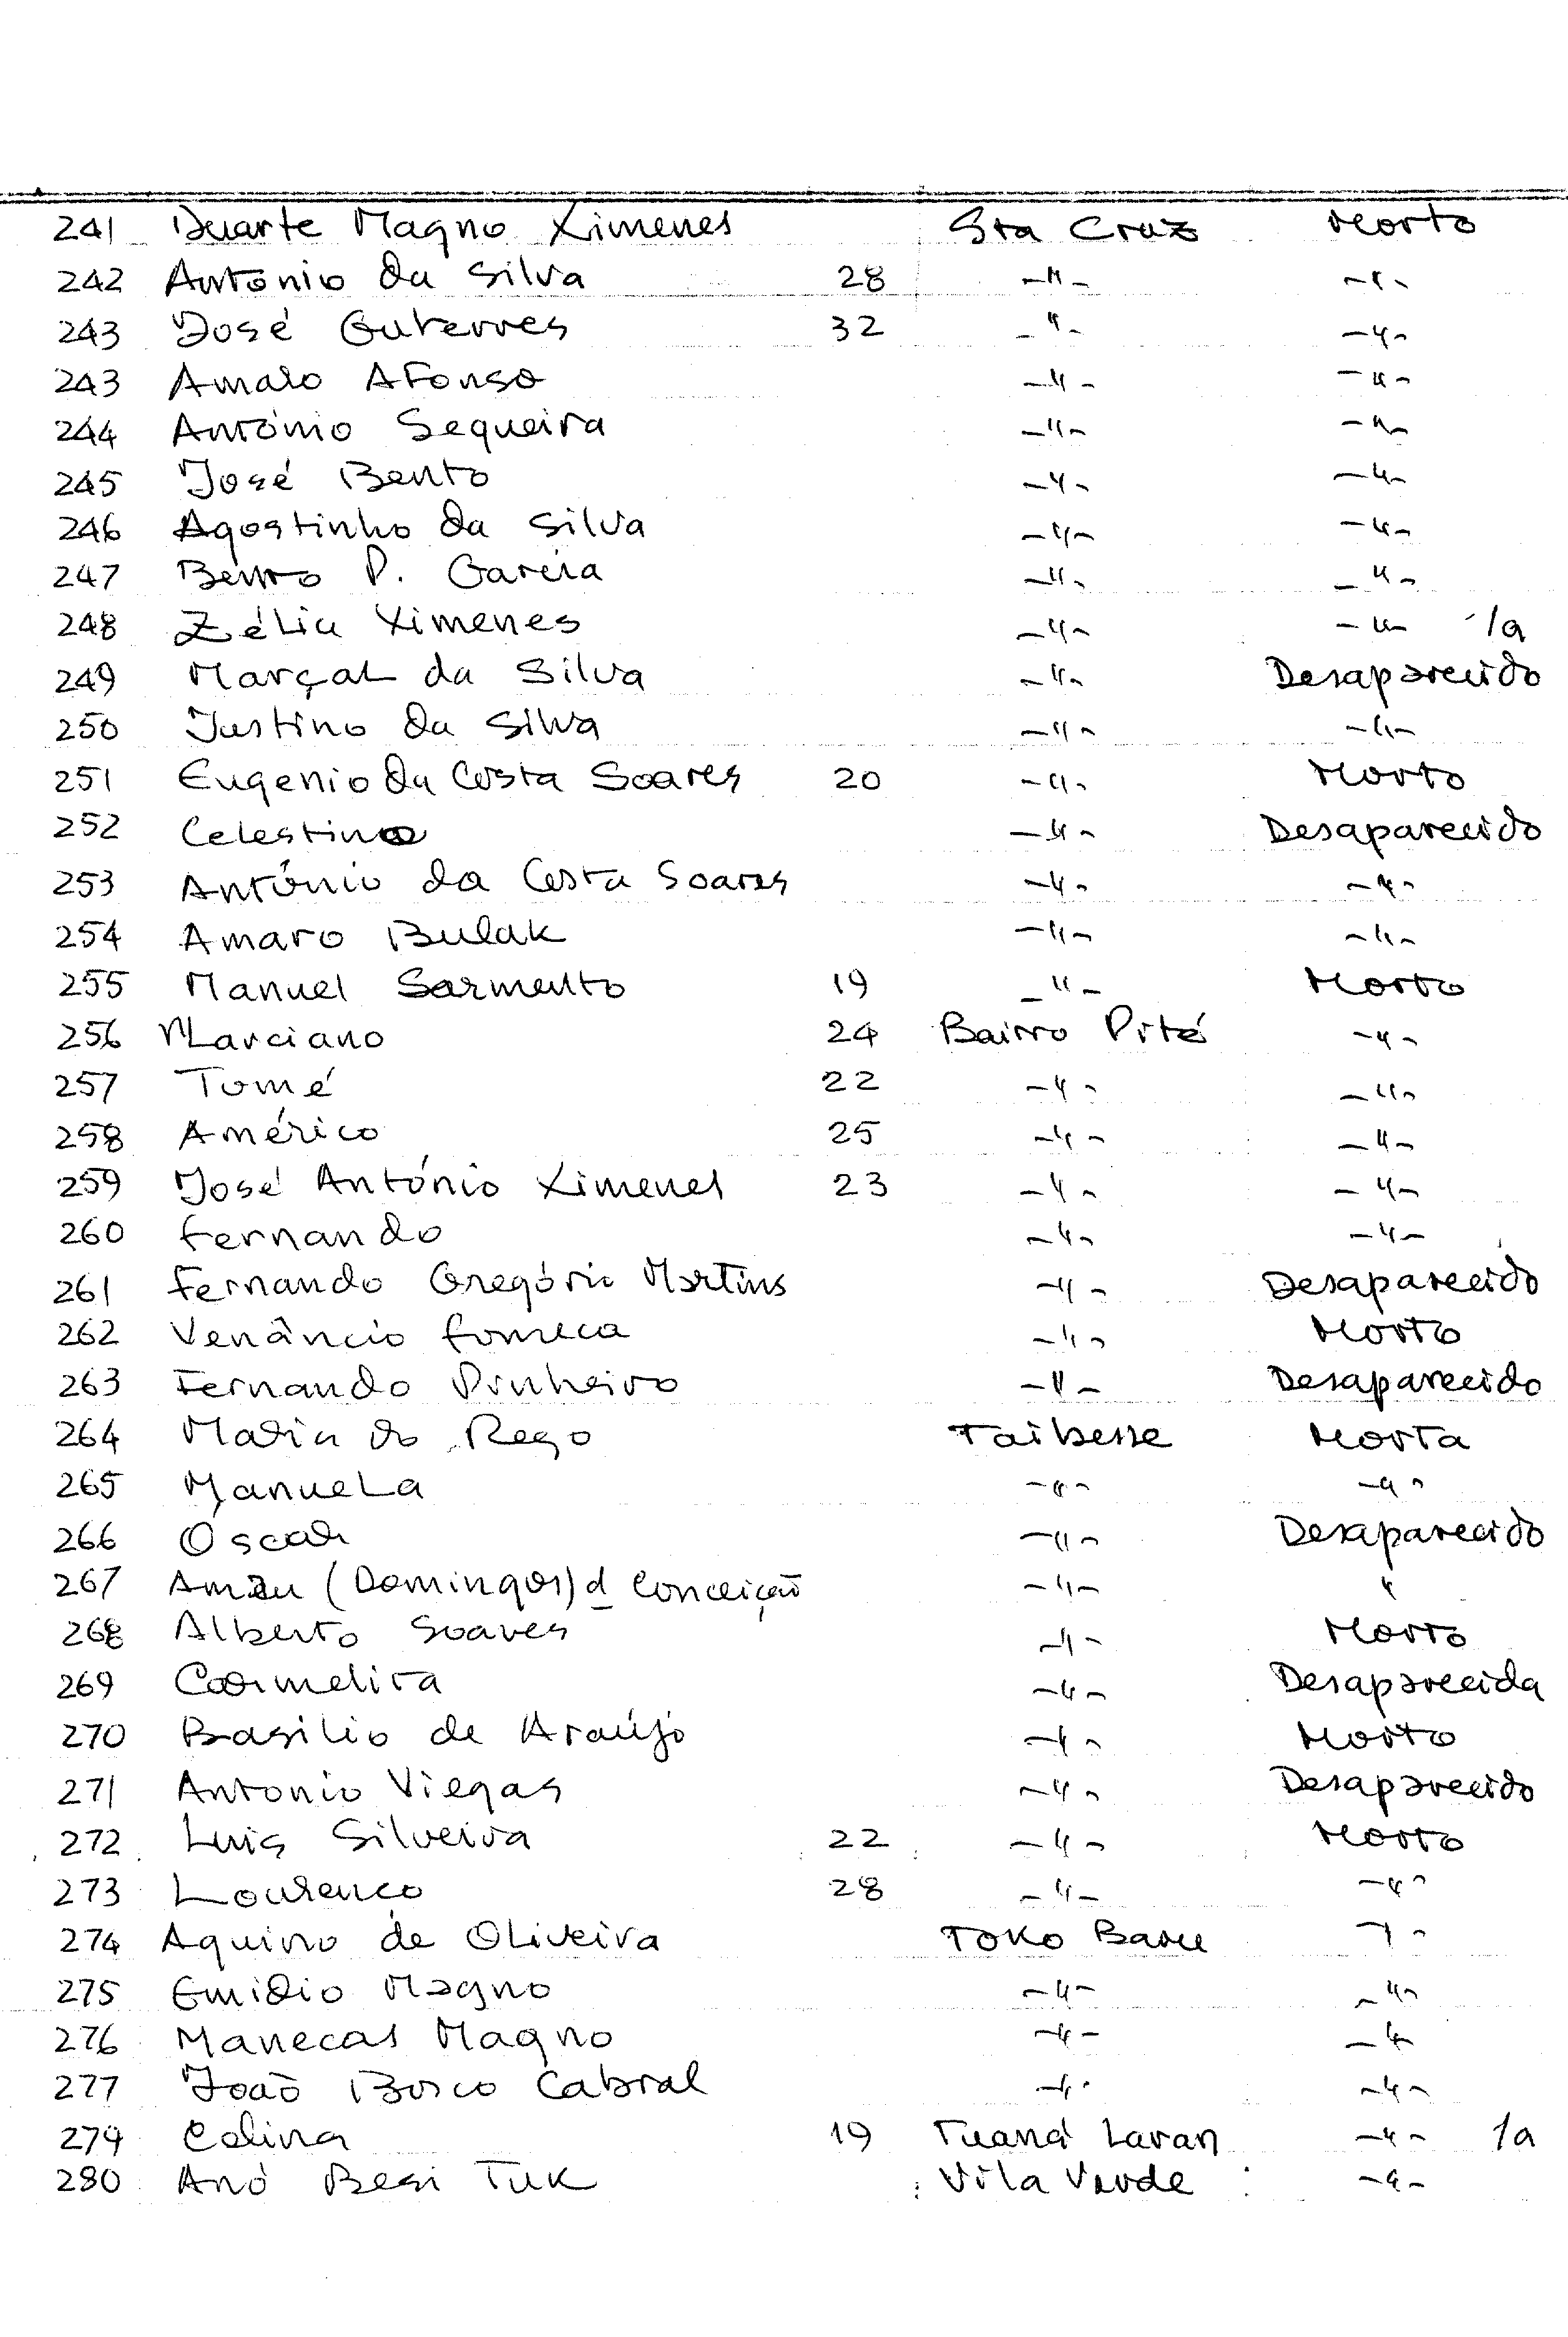 241 Duarte Magno Ximenes Sta Cruz Morto
242 Antonio da Silva 28 -"- -"-
243 José Guterres 32 -"- -"-
243 Amaro Afonso -"- -"-
244 António Sequeira -"- -"-
245 José Bento -"- -"-
246 Agostinho da Silva -"- -"-
247 Bento P. Garcia -"- -"-
248 Zélia Ximenes -"- -"- /a
249 Marçal da Silva -"- Desaparecido
250 Justino da Silva -"- -"-
251 Eugenio da Costa Soares 20 -"- Morto
252 Celestino -"- Desaparecido
253 António da Costa Soares -"- -"-
254 Amaro Bulak -"- -"-
255 Manuel Sarmento 19 -"- Morto
256 Marciano 24 Bairro Pité -"-
257 Tomé 22 -"- -"-
258 Américo 25 -"- -"-
259 José António Ximenes 23 -"- -"-
260 Fernando -"- -"-
261 Fernando Gregório Martins -"- Desaparecido
262 Venâncio Fonseca -"- Morto
263 Fernando Pinheiro -"- Desaparecido
264 Maria do Rego Taibesse Morta
265 Manuela -"- -"-
266 Oscar -"- Desaparecido
267 (Domingos) d Conceição -"- "
268 Alberto Soares -"- Morto
269 Carmelita -"- Desaparecida
270 Basilio de Araújo -"- Morto
271 Antonio Viegas -"- Desaparecido
272 Luis Silveira 22 -"- Morto
273 Lourenço 28 -"- -"-
274 Aquino de Oliveira Toko Baru -"-
275 Emidio Magno -"- -"-
276 Manecas Magno -"- -"-
277 João Bosco Cabral -"- -"-
279 Celina 19 Tuaná Laran -"- /a
280 Anó Besi Tuk Vila Verde -"-